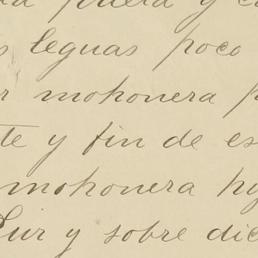 puerta y c
s leguas poco
r mohonera p
te y fin de es
mohonera hy
Luir y sobre dic